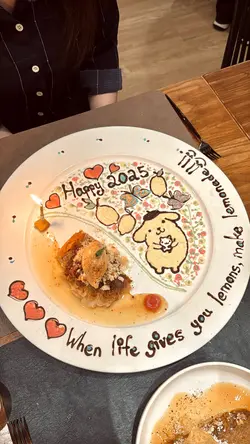 Happy 2025
When life gives you lemons, make lemonade!!!